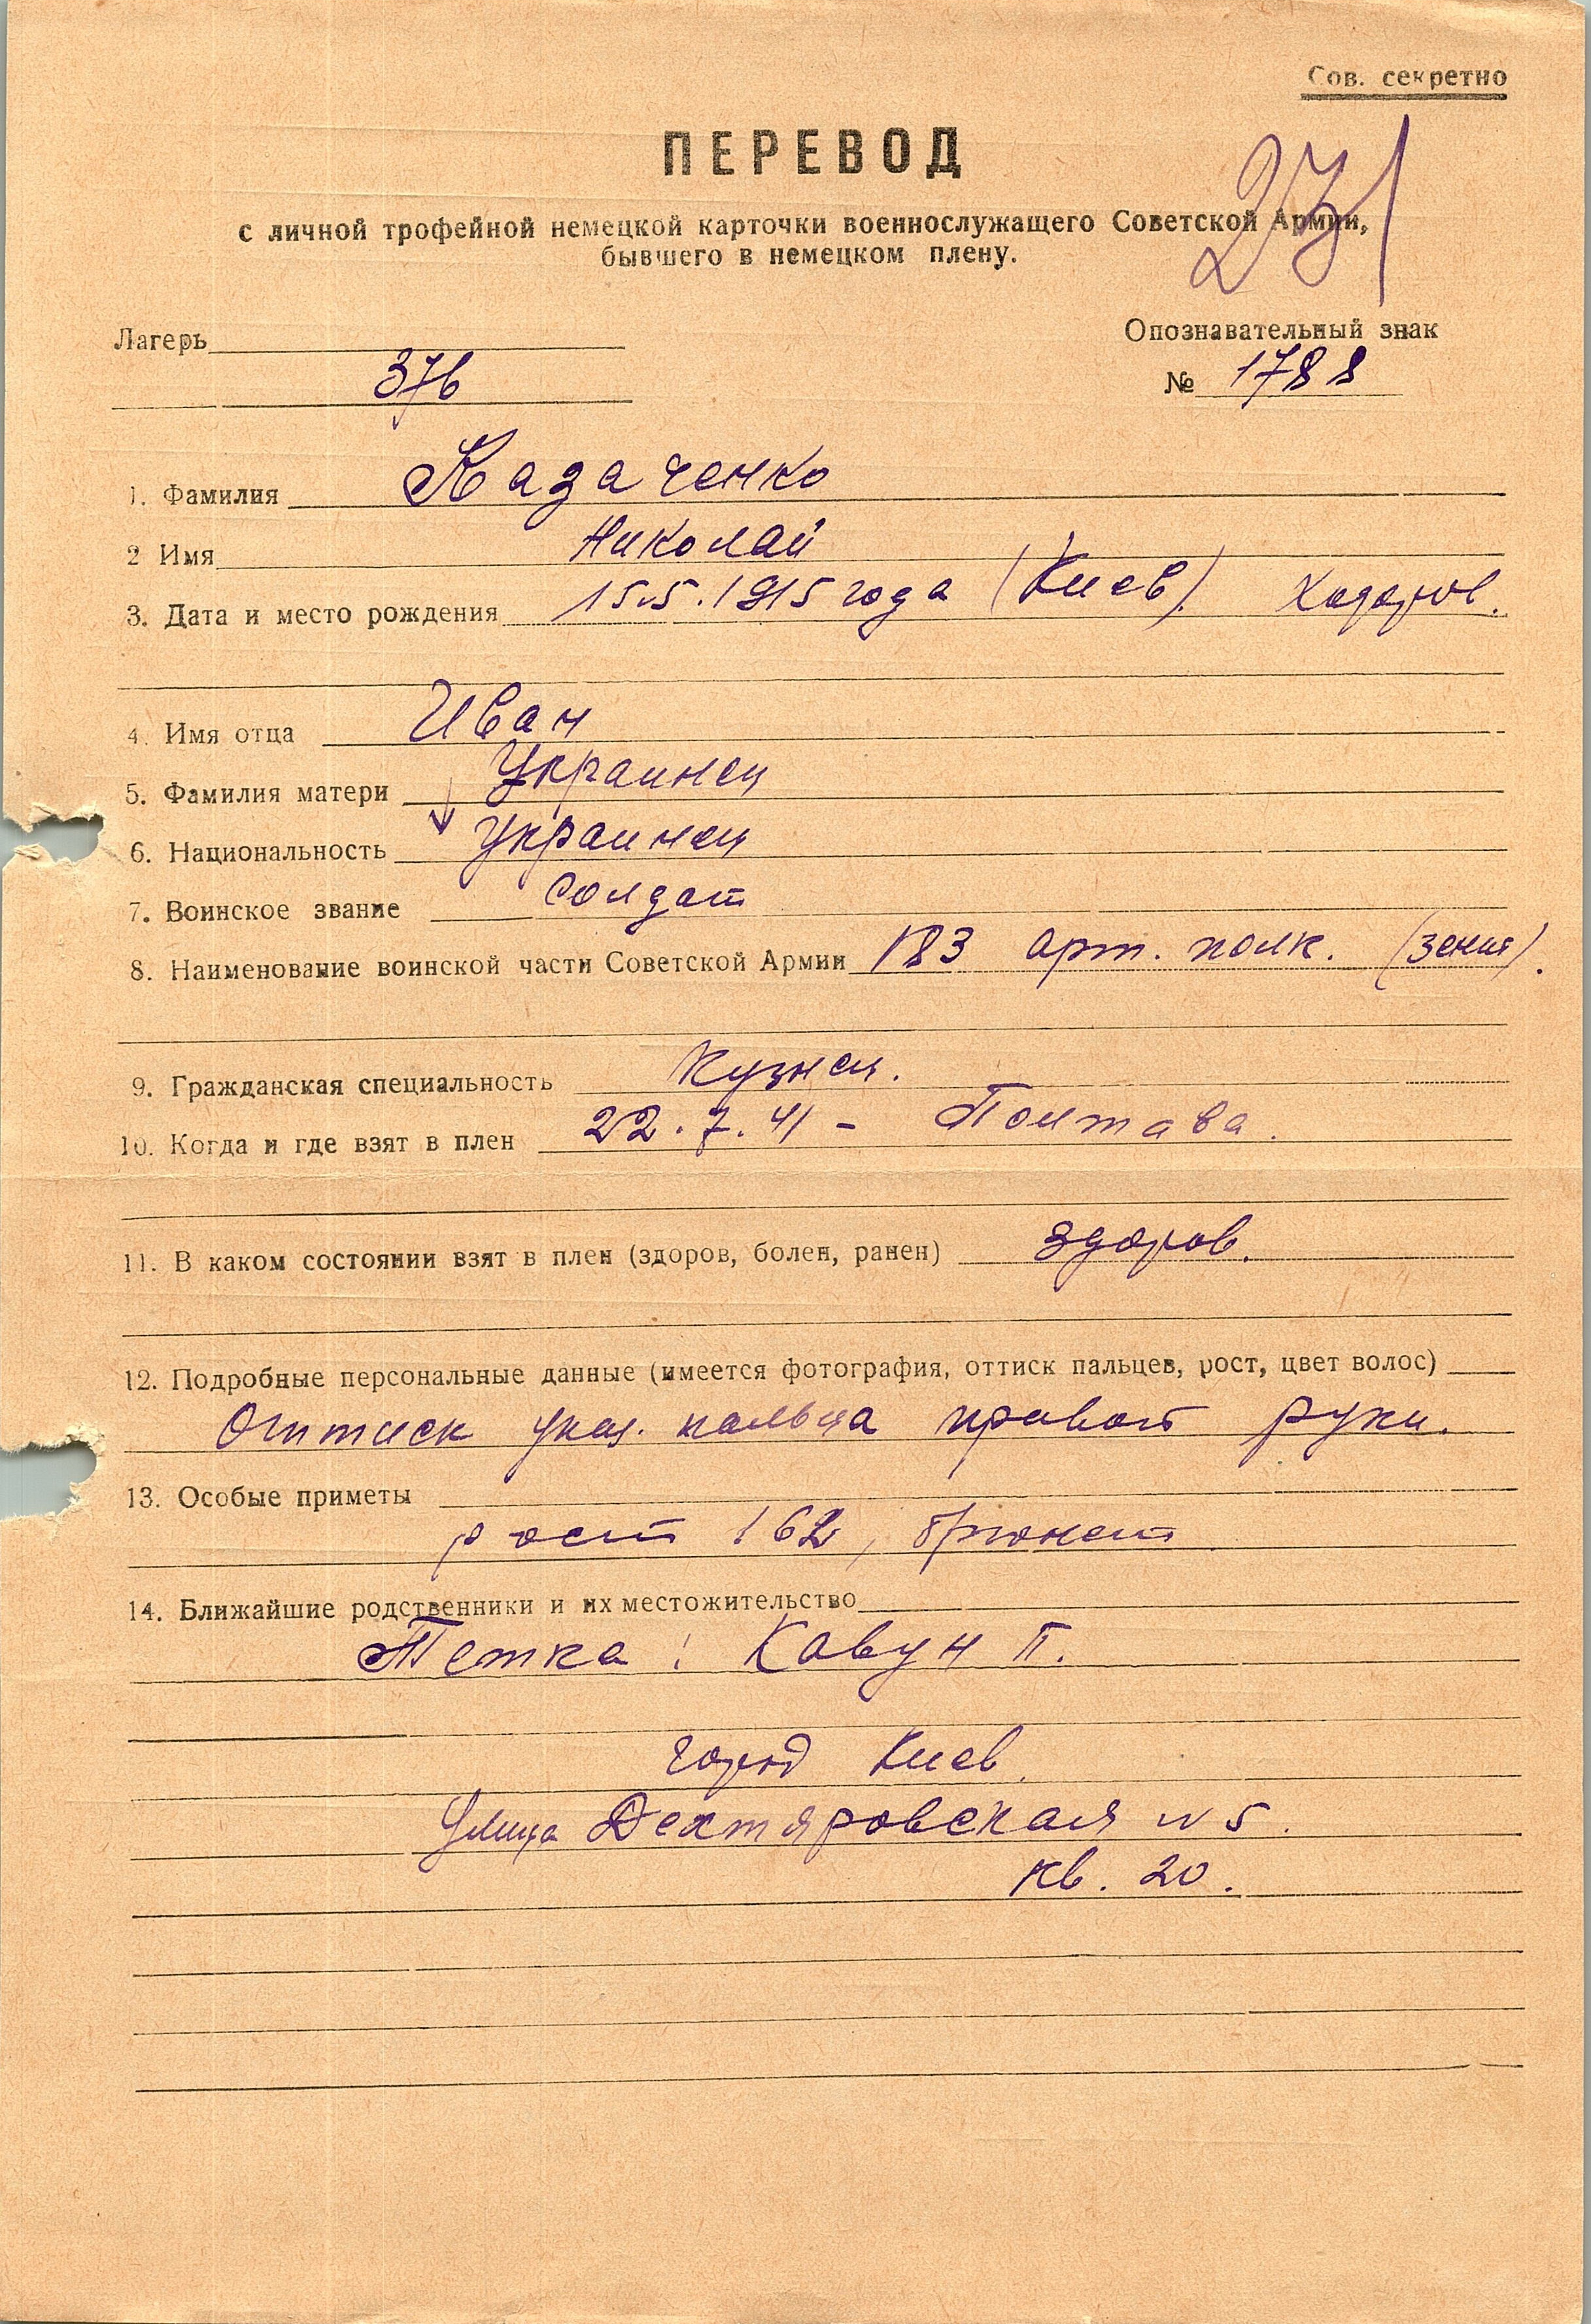 Сов. секретно
ПЕРЕВОД
271
с личной трофейной немецкой карточки военнослужащего Советской Армии,
бывшего в немецком плену.
Лагерь
Опознавательный знак
376
№ 1788
1. Фамилия Казаченко
2 Имя Николай
3. Дата и место рождения 15.5.1915 года (Киев). Ходоров.
4. Имя отца Иван
5. Фамилия матери Украинец
6. Национальность Украинец
7. Воинское звание солдат
8. Наименование воинской части Советской Армии 183 арт. полк. (зенит).
9. Гражданская специальность Кузнец.
10. Когда и где взят в плен 22.7.41 - Полтава.
11. В каком состоянии взят в плен (здоров, болен, ранен) здоров.
12. Подробные персональные данные (имеется фотография, оттиск пальцев, рост, цвет волос)
Оттиск указ. пальца правой руки.
13. Особые приметы
рост 162, брюнет
14. Ближайшие родственники и их местожительство
Тетка: Кавун П.
город Киев.
Улица Дехтяровская N 5.
кв. 20.